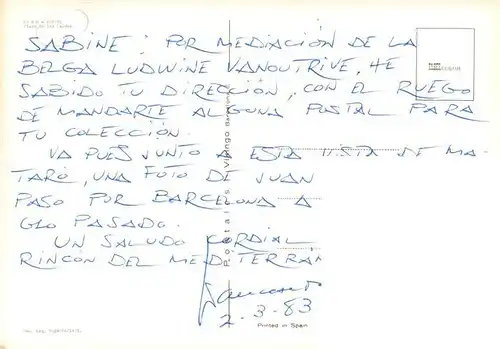 SABINE: POR MEDIACIÓN DE LA
BELGA LUDWINE VANOUTRIVE, HE
SABIDO TU DIRECCIÓN, CON EL RUEGO
DE MANDARTE ALGUNA POSTAL PARA
TU COLECCIÓN.
VA PUES JUNTO A ESTA VISTA DE MA-
TARÓ, UNA FOTO DE JUAN
PASO POR BARCELONA A
GLO PASADO.
UN SALUDO CORDIAL
RINCON DEL MEDITERRÁ
2-3-83
Printed in Spain